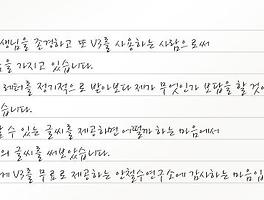 생님을 존경하고 또 V3를 사용하는 사람으로써
을 가지고 있습니다.
레터를 정기적으로 받아보다 제가 무엇인가 보답을 할 것이
습니다.
할 수 있는 글씨를 제공하면 어떨까 하는 마음에서
의 글씨를 써보았습니다.
게 V3를 무료로 제공하는 안철수연구소에 감사하는 마음입